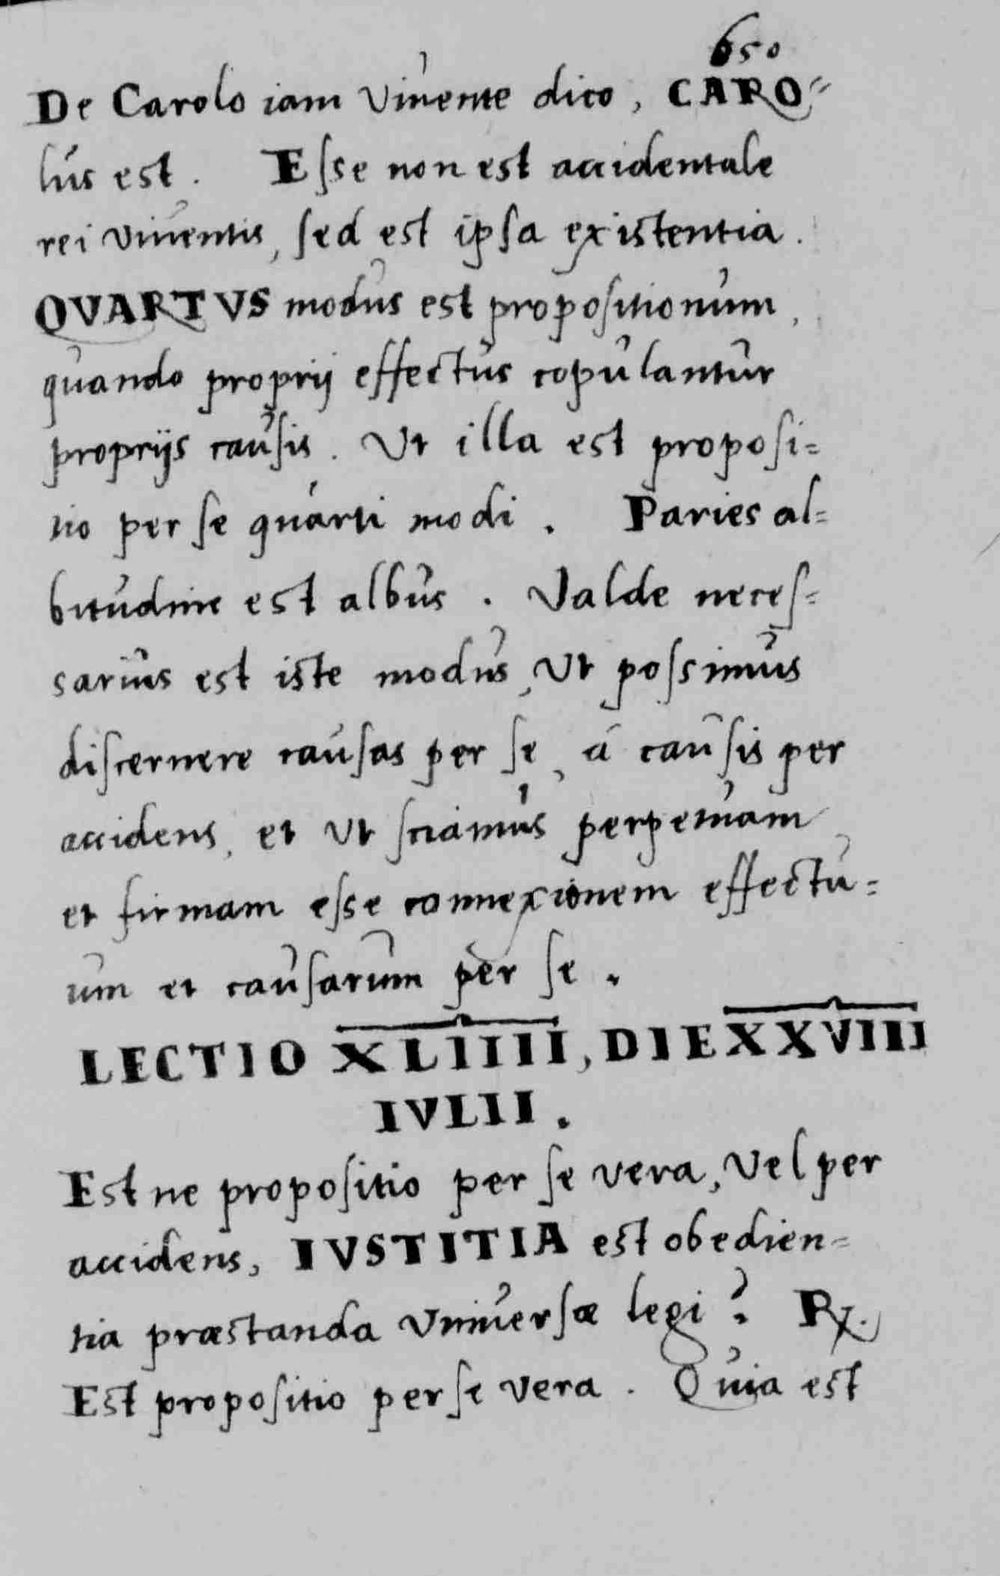 650
De Carolo iam viuente dico, CARO=
lus est. Esse non est accidentale
rei viuentis, sed est ipsa existentia.
QVARTVS modus est propositionum,
quando proprij effectus copulantur
proprijs causis. Vt illa est proposi=
tio per se quarti modi. Paries al=
bitudine est albus. Valde neces=
sarius est iste modus, Vt possimus
discernere causas per se, á causis per
accidens, et vt sciamus perpetuam
et firmam esse connexionem effectu=
um et causarum per se.
LECTIO XLIIII, DIE XXVIII
IVLII.
Est ne propositio per se vera, vel per
accidens, IVSTITIA est obedien=
tia præstanda vniuersæ legi? R̸.
Est propositio per se vera. Quia est